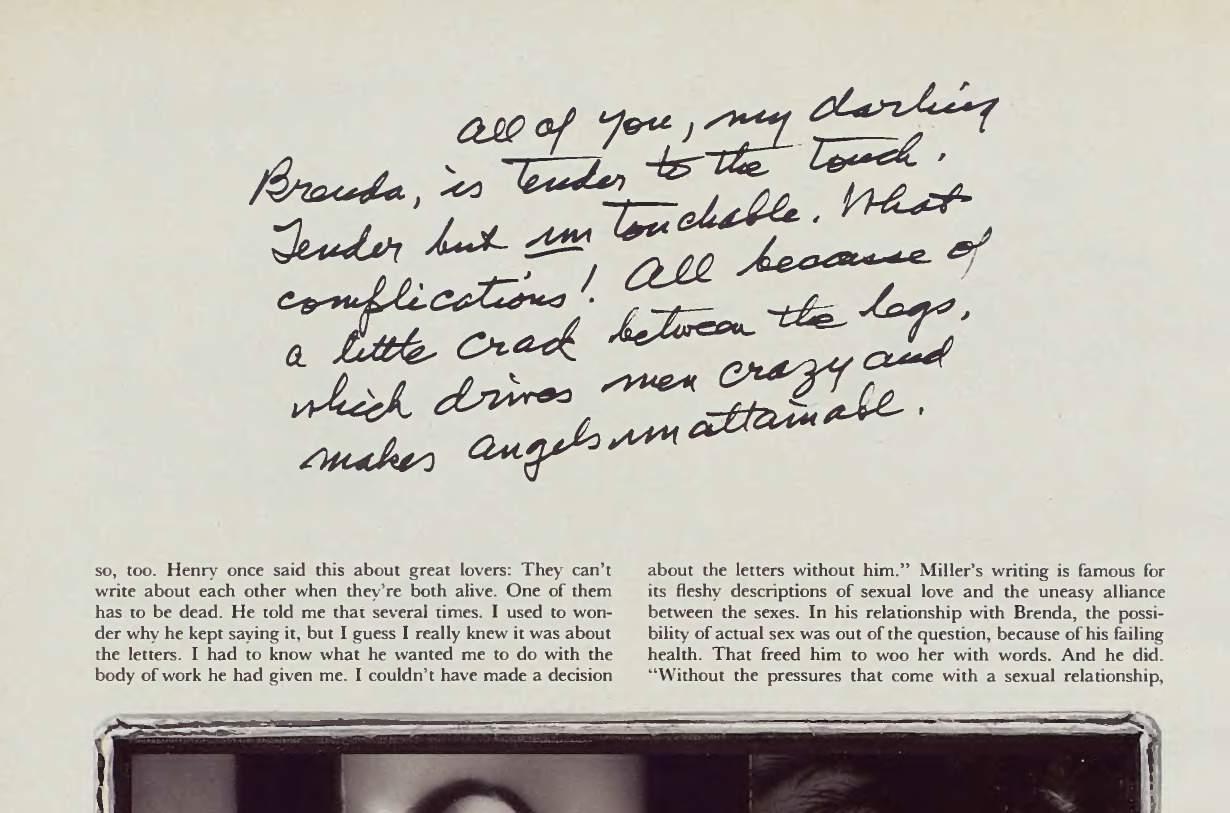 All of you, my darling
Brenda, is tender to the touch.
Tender but untouchable. What
complications! All because of
a little crack between the legs,
which drives men crazy and
makes angels unattainable.
so, too. Henry once said this about great lovers: They can't
write about each other when they're both alive. One of them
has to be dead. He told me that several times. I used to won-
der why he kept saying it, but I guess I really knew it was about
the letters. I had to know what he wanted me to do with the
body of work he had given me. I couldn't have made a decision
about the letters without him." Miller's writing is famous for
its fleshy descriptions of sexual love and the uneasy alliance
between the sexes. In his relationship with Brenda, the possi-
bility of actual sex was out of the question, because of his failing
health. That freed him to woo her with words. And he did.
"Without the pressures that come with a sexual relationship,